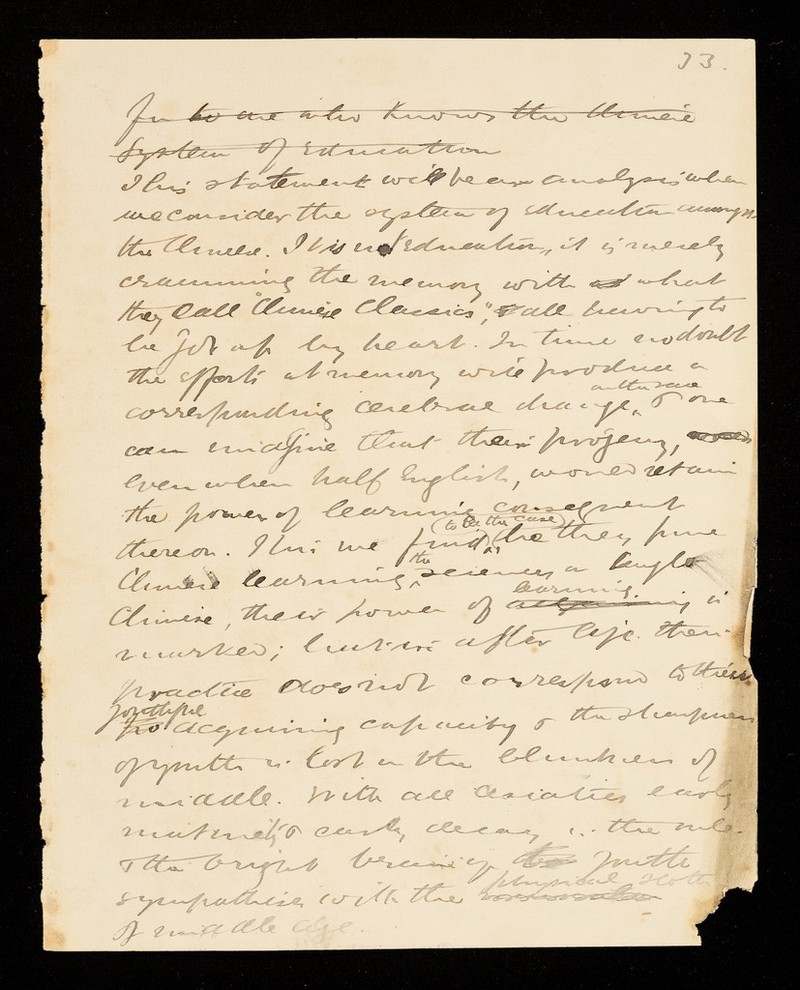 33.
For to one who knows the Chinese
System of Education
This statement will be an analysis when
we consider the system of education amongst
the Chinese. It is not Education, it is merely
cramming the memory with what
they call "Chinese Classics", all having to
be got up by heart. In time no doubt
the efforts at memory will produce a
on the race
corresponding cerebral change, & one
can imagine that their progeny,
even when half English, would retain
the power of learning consequent
(to be the case)
thereon. This we find, be they pure
the
Chinese learning sciences or Anglo
learning
Chinese, their power of acquiring is
marked; but in after life their
practice does not correspond to their
youthful
acquiring capacity & the sharpness
of youth is lost in the bluntness of
middle. With all Asiatics early
maturity & early decay is the rule.
& the bright brain of youth
physical sloth
sympathises with the
of middle age.